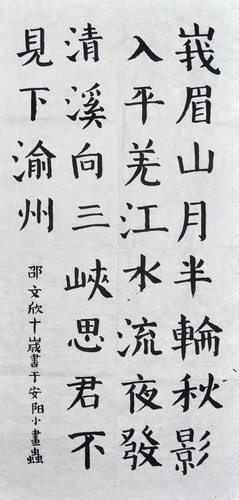 峩眉山月半輪秋影
入平羌江水流夜發
清溪向三峽思君不
見下渝州
邵文欣十歲書于安阳小畫蟲